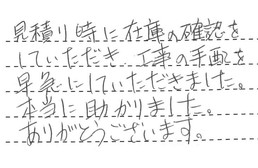 見積り時に在庫の確認を
していただき、工事の手配を
早急にしていただきました。
本当に助かりました。
ありがとうございます。